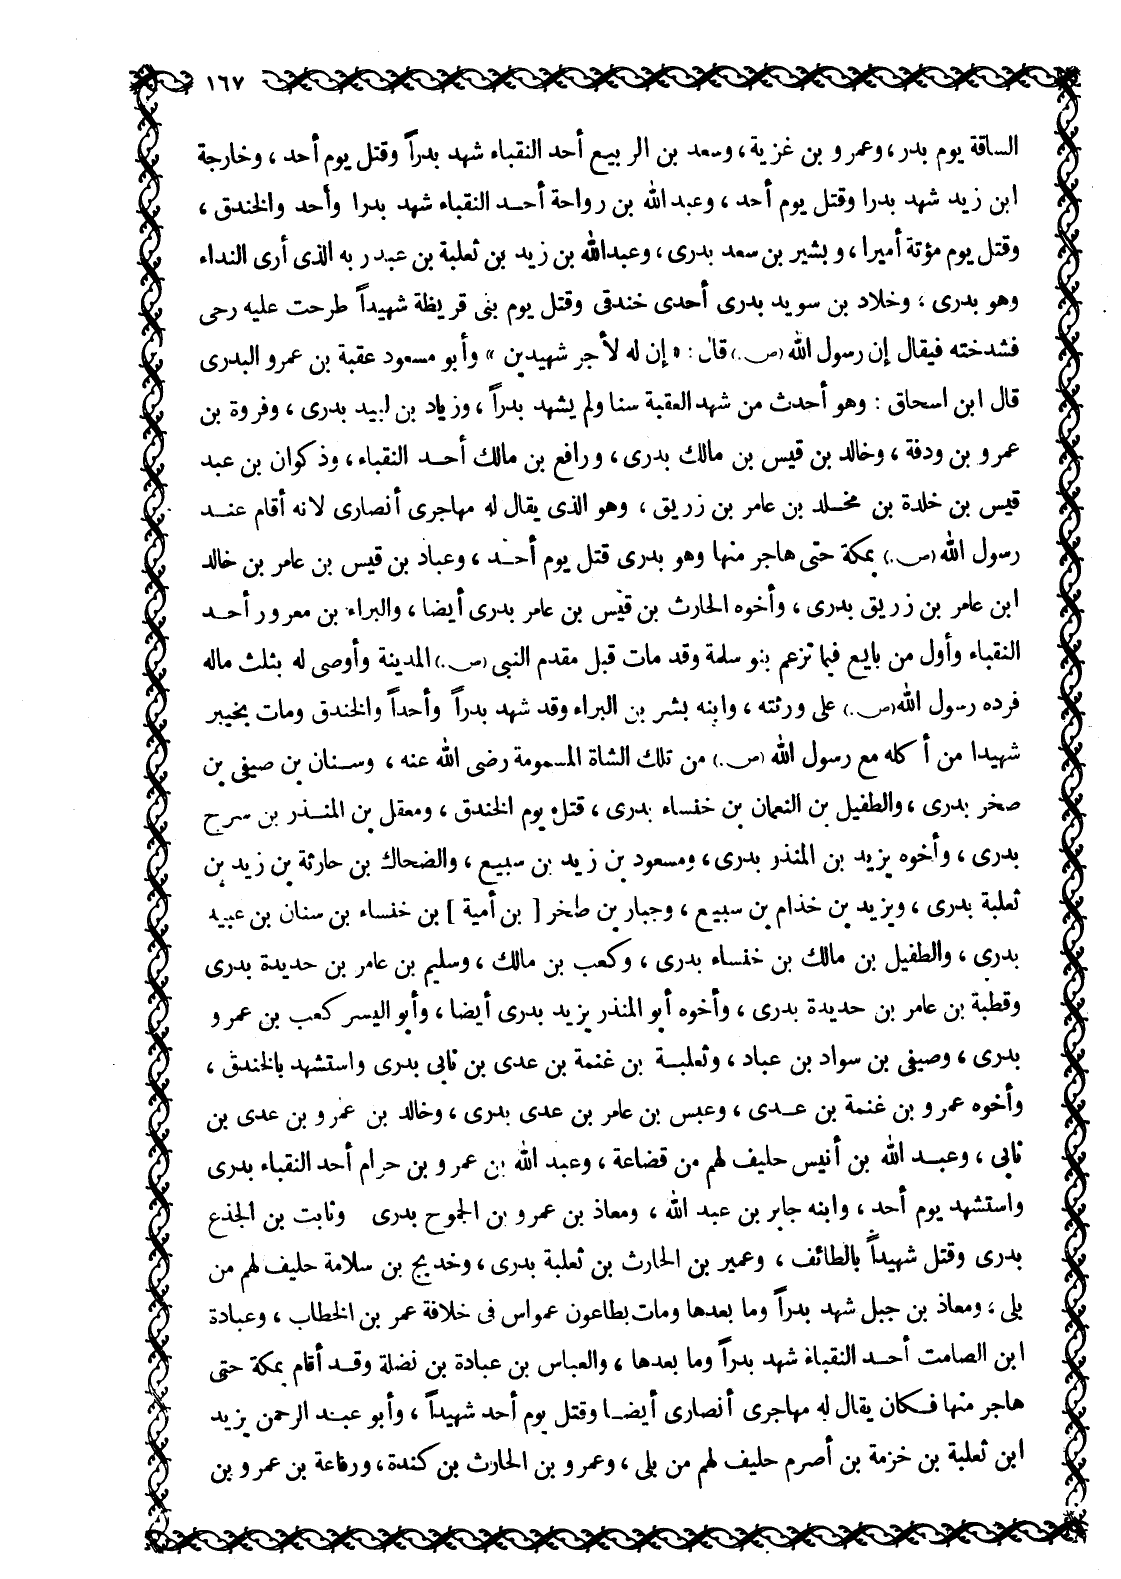 ١٦٧
الساقة يوم بدر، وعمرو بن غزية، وسعد بن الربيع أحد النقباء شهد بدراً وقتل يوم أحد، وخارجة
ابن زيد شهد بدرا وقتل يوم أحد، وعبد الله بن رواحة أحد النقباء شهد بدرا وأحد والخندق،
وقتل يوم مؤتة أميرا، وبشير بن سعد بدرى، وعبدالله بن زيد بن ثعلبة بن عبد ربه الذى أرى النداء
وهو بدرى، وخلاد بن سويد بدرى أحدى خندقى وقتل يوم بنى قريظة شهيداً طرحت عليه رحى
فشدخته فيقال إن رسول الله (ص.) قال: «إن له لأجر شهيدين» وأبو مسعود عقبة بن عمرو البدرى
قال ابن اسحاق: وهو أحدث من شهد العقبة سنا ولم يشهد بدراً، وزياد بن لبيد بدرى، وفروة بن
عمرو بن ودفة، وخالد بن قيس بن مالك بدرى، ورافع بن مالك أحد النقباء، وذكوان بن عبد
قيس بن خلدة بن مخلد بن عامر بن زريق، وهو الذى يقال له مهاجرى أنصارى لانه أقام عند
رسول الله (ص.) بمكة حتى هاجر منها وهو بدرى قتل يوم أحد، وعباد بن قيس بن عامر بن خالد
ابن عامر بن زريق بدرى، وأخوه الحارث بن قيس بن عامر بدرى أيضا، والبراء بن معرور أحد
النقباء وأول من بايع فيما تزعم بنو سلمة وقد مات قبل مقدم النبى (ص.) المدينة وأوصى له بثلث ماله
فرده رسول الله (ص.) على ورثته، وابنه بشر بن البراء وقد شهد بدراً وأحداً والخندق ومات بخيبر
شهيدا من أكله مع رسول الله (ص.) من تلك الشاة المسمومة رضى الله عنه، وسنان بن صيفى بن
صخر بدرى، والطفيل بن النعمان بن خنساء بدرى، قتل يوم الخندق، ومعقل بن المنذر بن سرح
بدرى، وأخوه يزيد بن المنذر بدرى، ومسعود بن زيد بن سبيع، والضحاك بن حارثة بن زيد بن
ثعلبة بدرى، ويزيد بن خذام بن سبيع، وجبار بن صخر [بن أمية] بن خنساء بن سنان بن عبيد
بدرى، والطفيل بن مالك بن خنساء بدرى، وكعب بن مالك، وسليم بن عامر بن حديدة بدرى
وقطبة بن عامر بن حديدة بدرى، وأخوه أبو المنذر يزيد بدرى أيضا، وأبو اليسر كعب بن عمرو
بدرى، وصيفى بن سواد بن عباد، وثعلبة بن غنمة بن عدى بن نابى بدرى واستشهد بالخندق،
وأخوه عمرو بن غنمة بن عدى، وعبس بن عامر بن عدى بدرى، وخالد بن عمرو بن عدى بن
نابى، وعبد الله بن أنيس حليف لهم من قضاعة، وعبد الله بن عمرو بن حرام أحد النقباء بدرى
واستشهد يوم أحد، وابنه جابر بن عبد الله، ومعاذ بن عمرو بن الجموح بدرى وثابت بن الجذع
بدرى وقتل شهيداً بالطائف، وعمير بن الحارث بن ثعلبة بدرى، وخديج بن سلامة حليف لهم من
بلى، ومعاذ بن جبل شهد بدراً وما بعدها ومات بطاعون عمواس فى خلافة عمر بن الخطاب، وعبادة
ابن الصامت أحد النقباء شهد بدراً وما بعدها، والعباس بن عبادة بن نضلة وقد أقام بمكة حتى
هاجر منها فكان يقال له مهاجرى أنصارى أيضا وقتل يوم أحد شهيداً، وأبو عبد الرحمن يزيد
ابن ثعلبة بن خزمة بن أصرم حليف لهم من بلى، وعمرو بن الحارث بن كندة، ورفاعة بن عمرو بن